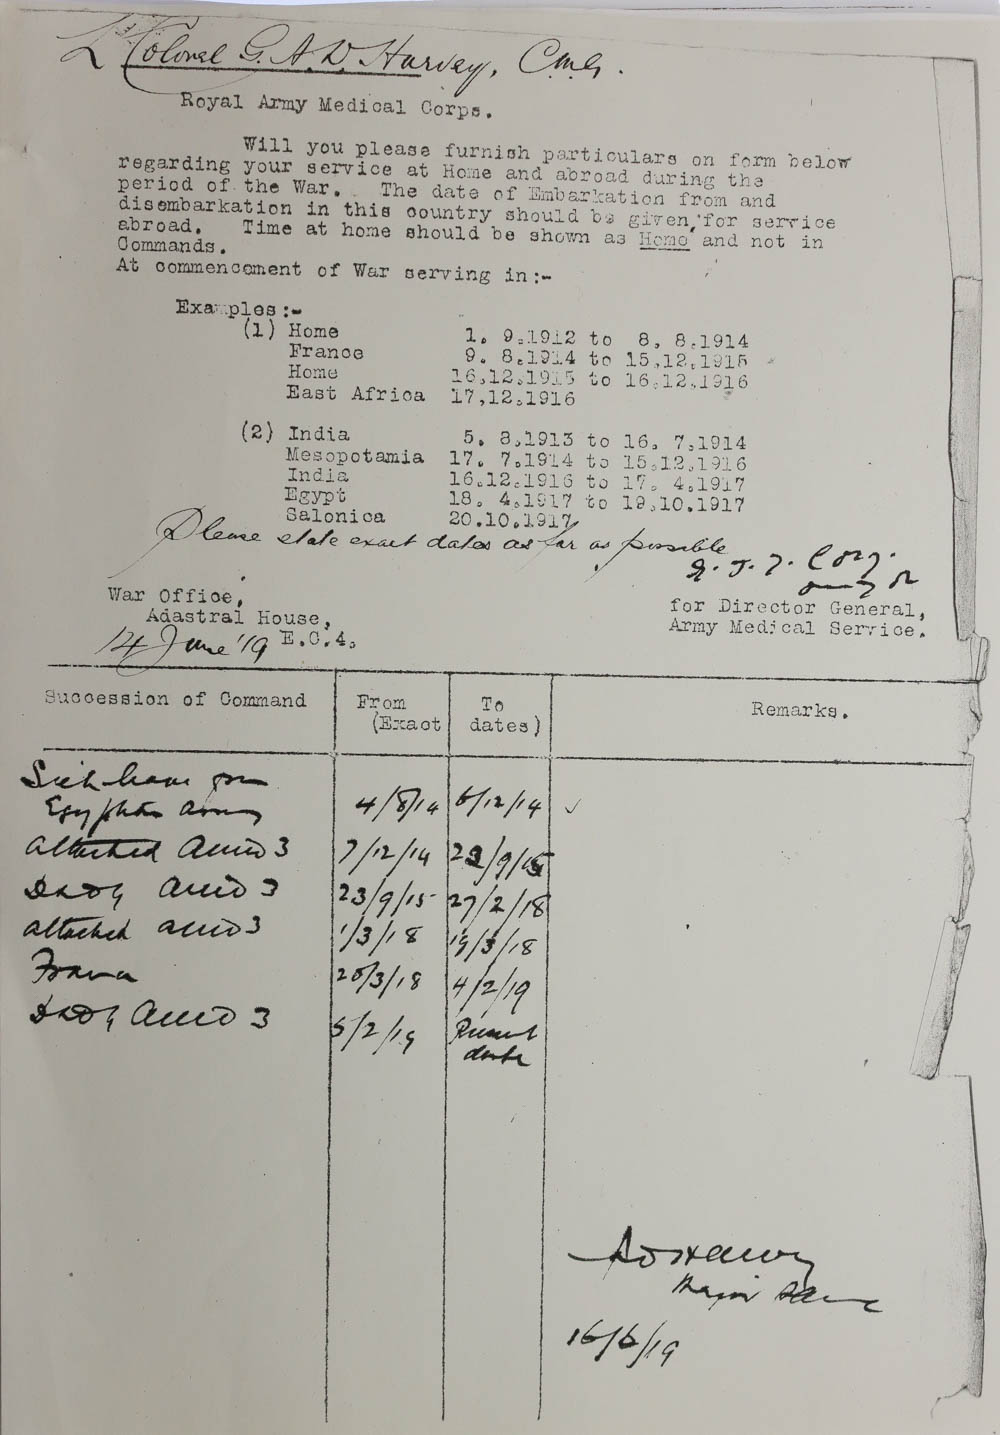 Lt Colonel G. A. D. Harvey, C.M.G.
Royal Army Medical Corps.
Will you please furnish particulars on form below
regarding your service at Home and abroad during the
period of the War. The date of Embarkation from and
disembarkation in this country should be given, for service
abroad. Time at home should be shown as Home and not in
Commands.
At commencement of War serving in:-
Examples:-
(1) Home 1. 9.1912 to 8. 8.1914
France 9. 8.1914 to 15.12.1915
Home 16.12.1915 to 16.12.1916
East Africa 17.12.1916
(2) India 5. 8.1913 to 16. 7.1914
Mesopotamia 17. 7.1914 to 15.12.1916
India 16.12.1916 to 17. 4.1917
Egypt 18. 4.1917 to 19.10.1917
Salonica 20.10.1917
Please state exact dates as far as possible
War Office,
Adastral House,
E.C.4.
14 June '19
for Director General,
Army Medical Service.
Succession of Command From To Remarks.
(Exact dates)
Sick leave from
Egyptian Army 4/8/14 6/12/14 ✓
attached AMD 3 7/12/14 22/9/15
DADG AMD 3 23/9/15 27/2/18
attached AMD 3 1/3/18 19/3/18
France 20/3/18 4/2/19
DADG AMD 3 5/2/19 Present
date
Harvey
Major RAMC
16/6/19